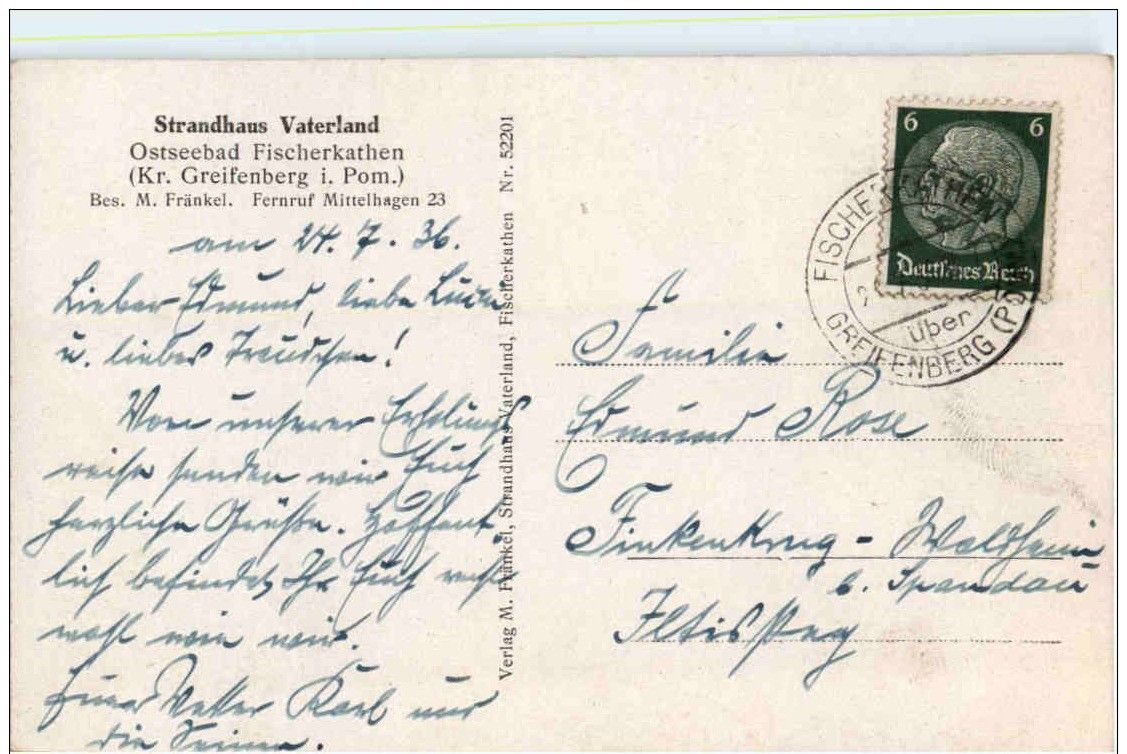 Strandhaus Vaterland
Ostseebad Fischerkathen
(Kr. Greifenberg i. Pom.)
Bes. M. Fränkel. Fernruf Mittelhagen 23
am 24. 7. 36.
Lieber Edmund, liebe
u. liebes Trudchen!
Von unserer Erholungs
reise senden wir Euch
herzliche Grüße. Hoffent-
lich befindet Ihr Euch
wohl wie wir.
Euer Vetter Karl und
die Seinen.
Verlag M. Fränkel, Strandhaus Vaterland, Fischerkathen Nr. 52201
6 6
Deutsches Reich
FISCHERKATHEN
über
GREIFENBERG (POM
Familie
Edmund Rose
Finkenkrug - Waldheim
b. Spandau
Iltissteg